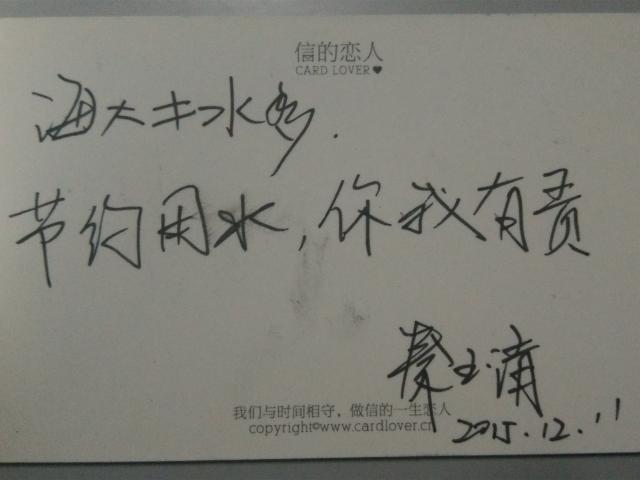 信的恋人
CARD LOVER♥
海大水多.
节约用水,你我有责
秦玉清
我们与时间相守，做信的一生恋人
copyright©www.cardlover.cn
2015.12.11